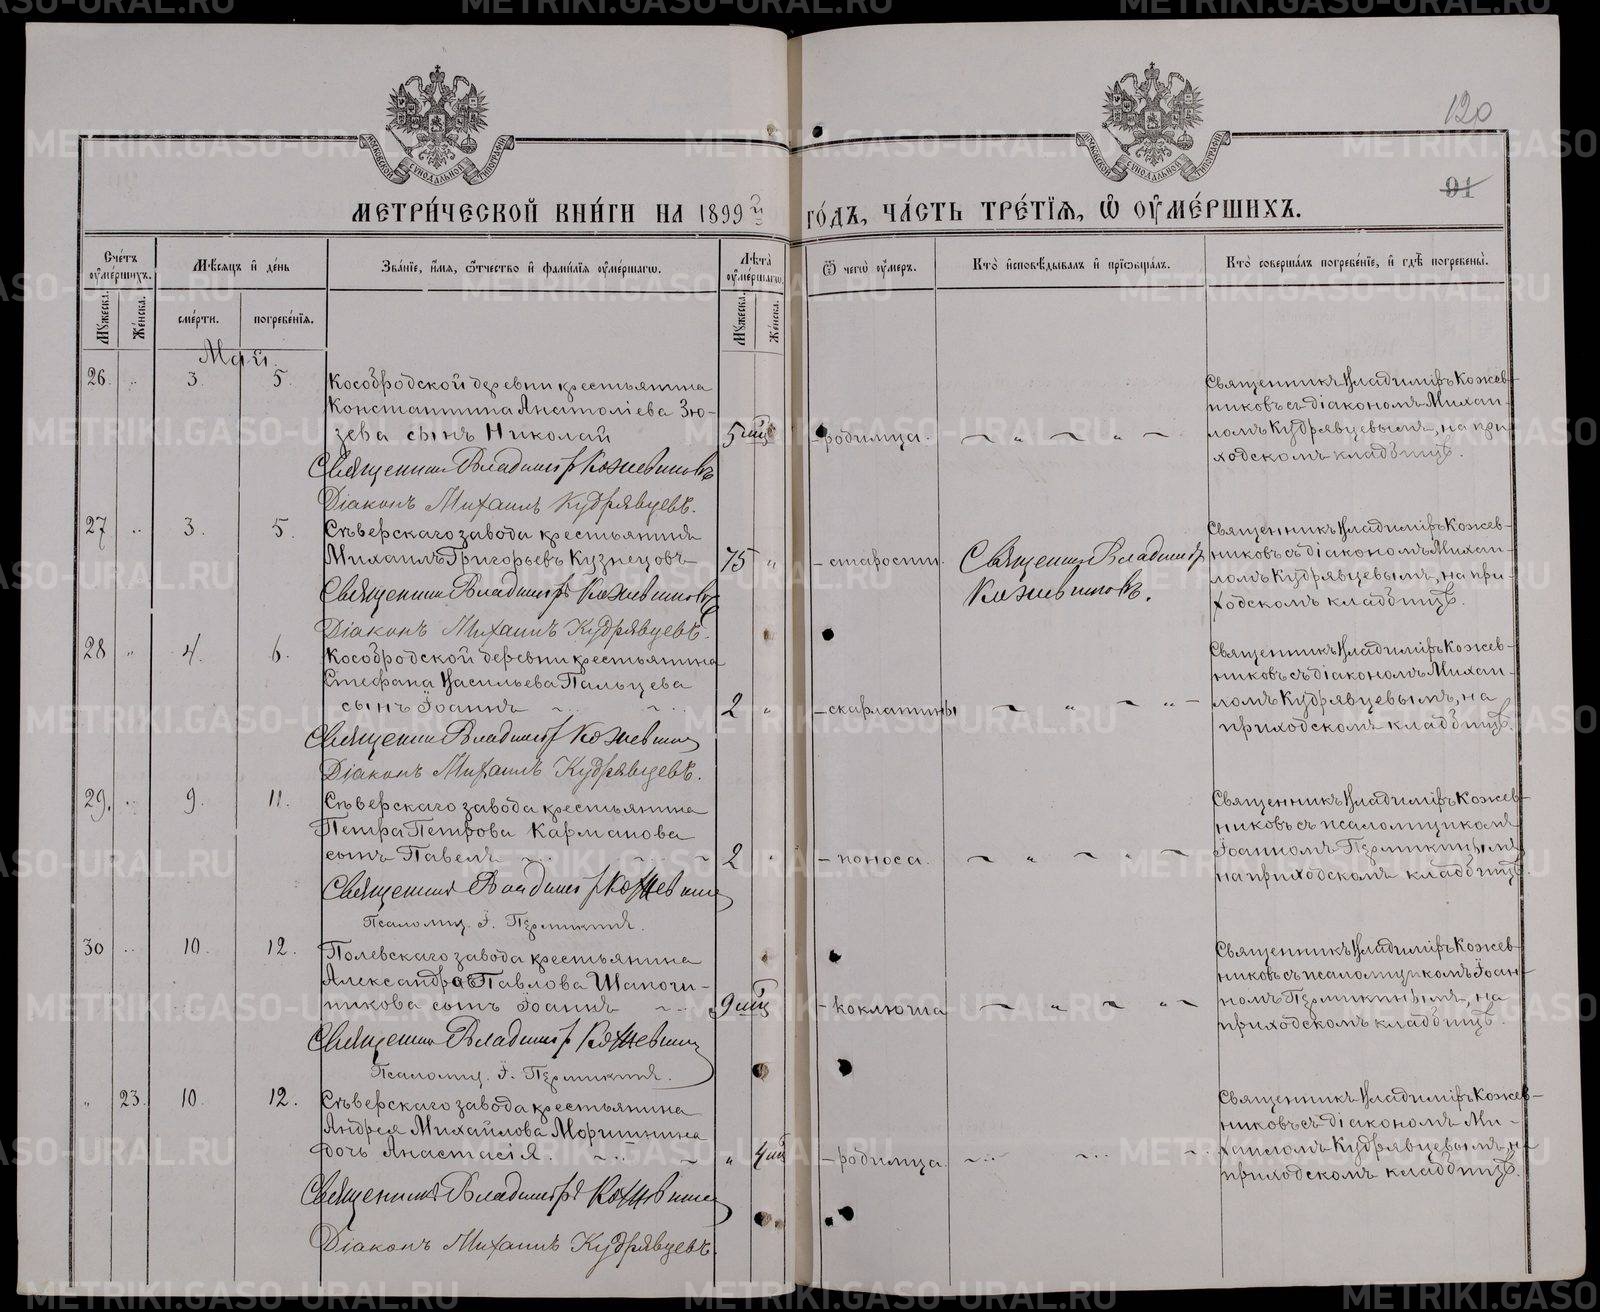 120
91
МЕТРИ́ЧЕСКОЙ КНИ́ГИ НА 1899 й ГО́ДЪ, ЧА́СТЬ ТРЕ́ТІѦ, Ѡ ОУ҆МЕ́РШИХЪ.
Сче́тъ оу҆ме́ршихъ.
Мѣсяцъ и де́нь
Зва́нїе, и҆́мѧ, ѻ҆́тчество и҆ фами́лїѧ оу҆ме́ршагѡ.
Лѣ́та оу҆ме́ршагѡ.
Ѿ чегѡ̀ оу҆́меръ.
Кто̀ и҆сповѣ́дывалъ и҆ прїѡбща́лъ.
Кто̀ соверша́лъ погребе́нїе, и҆ гдѣ̀ погребены̀.
Мꙋ́жеска.
Же́нска.
сме́рти.
погребе́нїѧ.
Мꙋ́жеска.
Же́нска.
Май.
26. „ 3. 5. Кособродской деревни крестьянина
Константина Анатоліева Зю-
зева сынъ Николай 5 мц - родимца.
Священникъ Владиміръ Кожевниковъ
Діаконъ Михаилъ Кудрявцевъ.
Священникъ Владиміръ Кожев-
никовъ съ діакономъ Михаи-
ломъ Кудрявцевымъ, на при-
ходскомъ кладбищѣ.
27 „ 3. 5. Сѣверскаго завода крестьянинъ
Михаилъ Григорьевъ Кузнецовъ 75 „ - старости.
Священникъ Владиміръ Кожевниковъ
Діаконъ Михаилъ Кудрявцевъ.
Священникъ Владиміръ
Кожевниковъ.
Священникъ Владиміръ Кожев-
никовъ съ діакономъ Михаи-
ломъ Кудрявцевымъ, на при-
ходскомъ кладбищѣ.
28 „ 4. 6. Кособродской деревни крестьянина
Стефана Васильева Пальцева
сынъ Іоаннъ 2 „ - скарлатины
Священникъ Владиміръ Кожевник
Діаконъ Михаилъ Кудрявцевъ.
Священникъ Владиміръ Кожев-
никовъ съ діакономъ Михаи-
ломъ Кудрявцевымъ, на
приходскомъ кладбищѣ.
29. „ 9. 11. Сѣверскаго завода крестьянина
Петра Петрова Карманова
сынъ Павелъ 2 „ - поноса.
Священникъ Владиміръ Кожевник
Псаломщ. І. Пермикинъ.
Священникъ Владиміръ Кожев-
никовъ съ псаломщикомъ
Іоанномъ Пермикинымъ
на приходскомъ кладбищѣ.
30 „ 10. 12. Полевскаго завода крестьянина
Александра Павлова Шапоч-
никова сынъ Іоаннъ 9 мц - коклюша
Священникъ Владиміръ Кожевник
Псаломщ. І. Пермикинъ.
Священникъ Владиміръ Кожев-
никовъ съ псаломщикомъ Іоан-
номъ Пермикинымъ, на
приходскомъ кладбищѣ.
„ 23. 10. 12. Сѣверскаго завода крестьянина
Андрея Михайлова
дочь Анастасія. „ 4 мц - родимца.
Священникъ Владиміръ Кожевник
Діаконъ Михаилъ Кудрявцевъ.
Священникъ Владиміръ Кожев-
никовъ съ діакономъ Ми-
хаиломъ Кудрявцевымъ, н
приходскомъ кладбищѣ.
METRIKI.GASO-URAL.RU